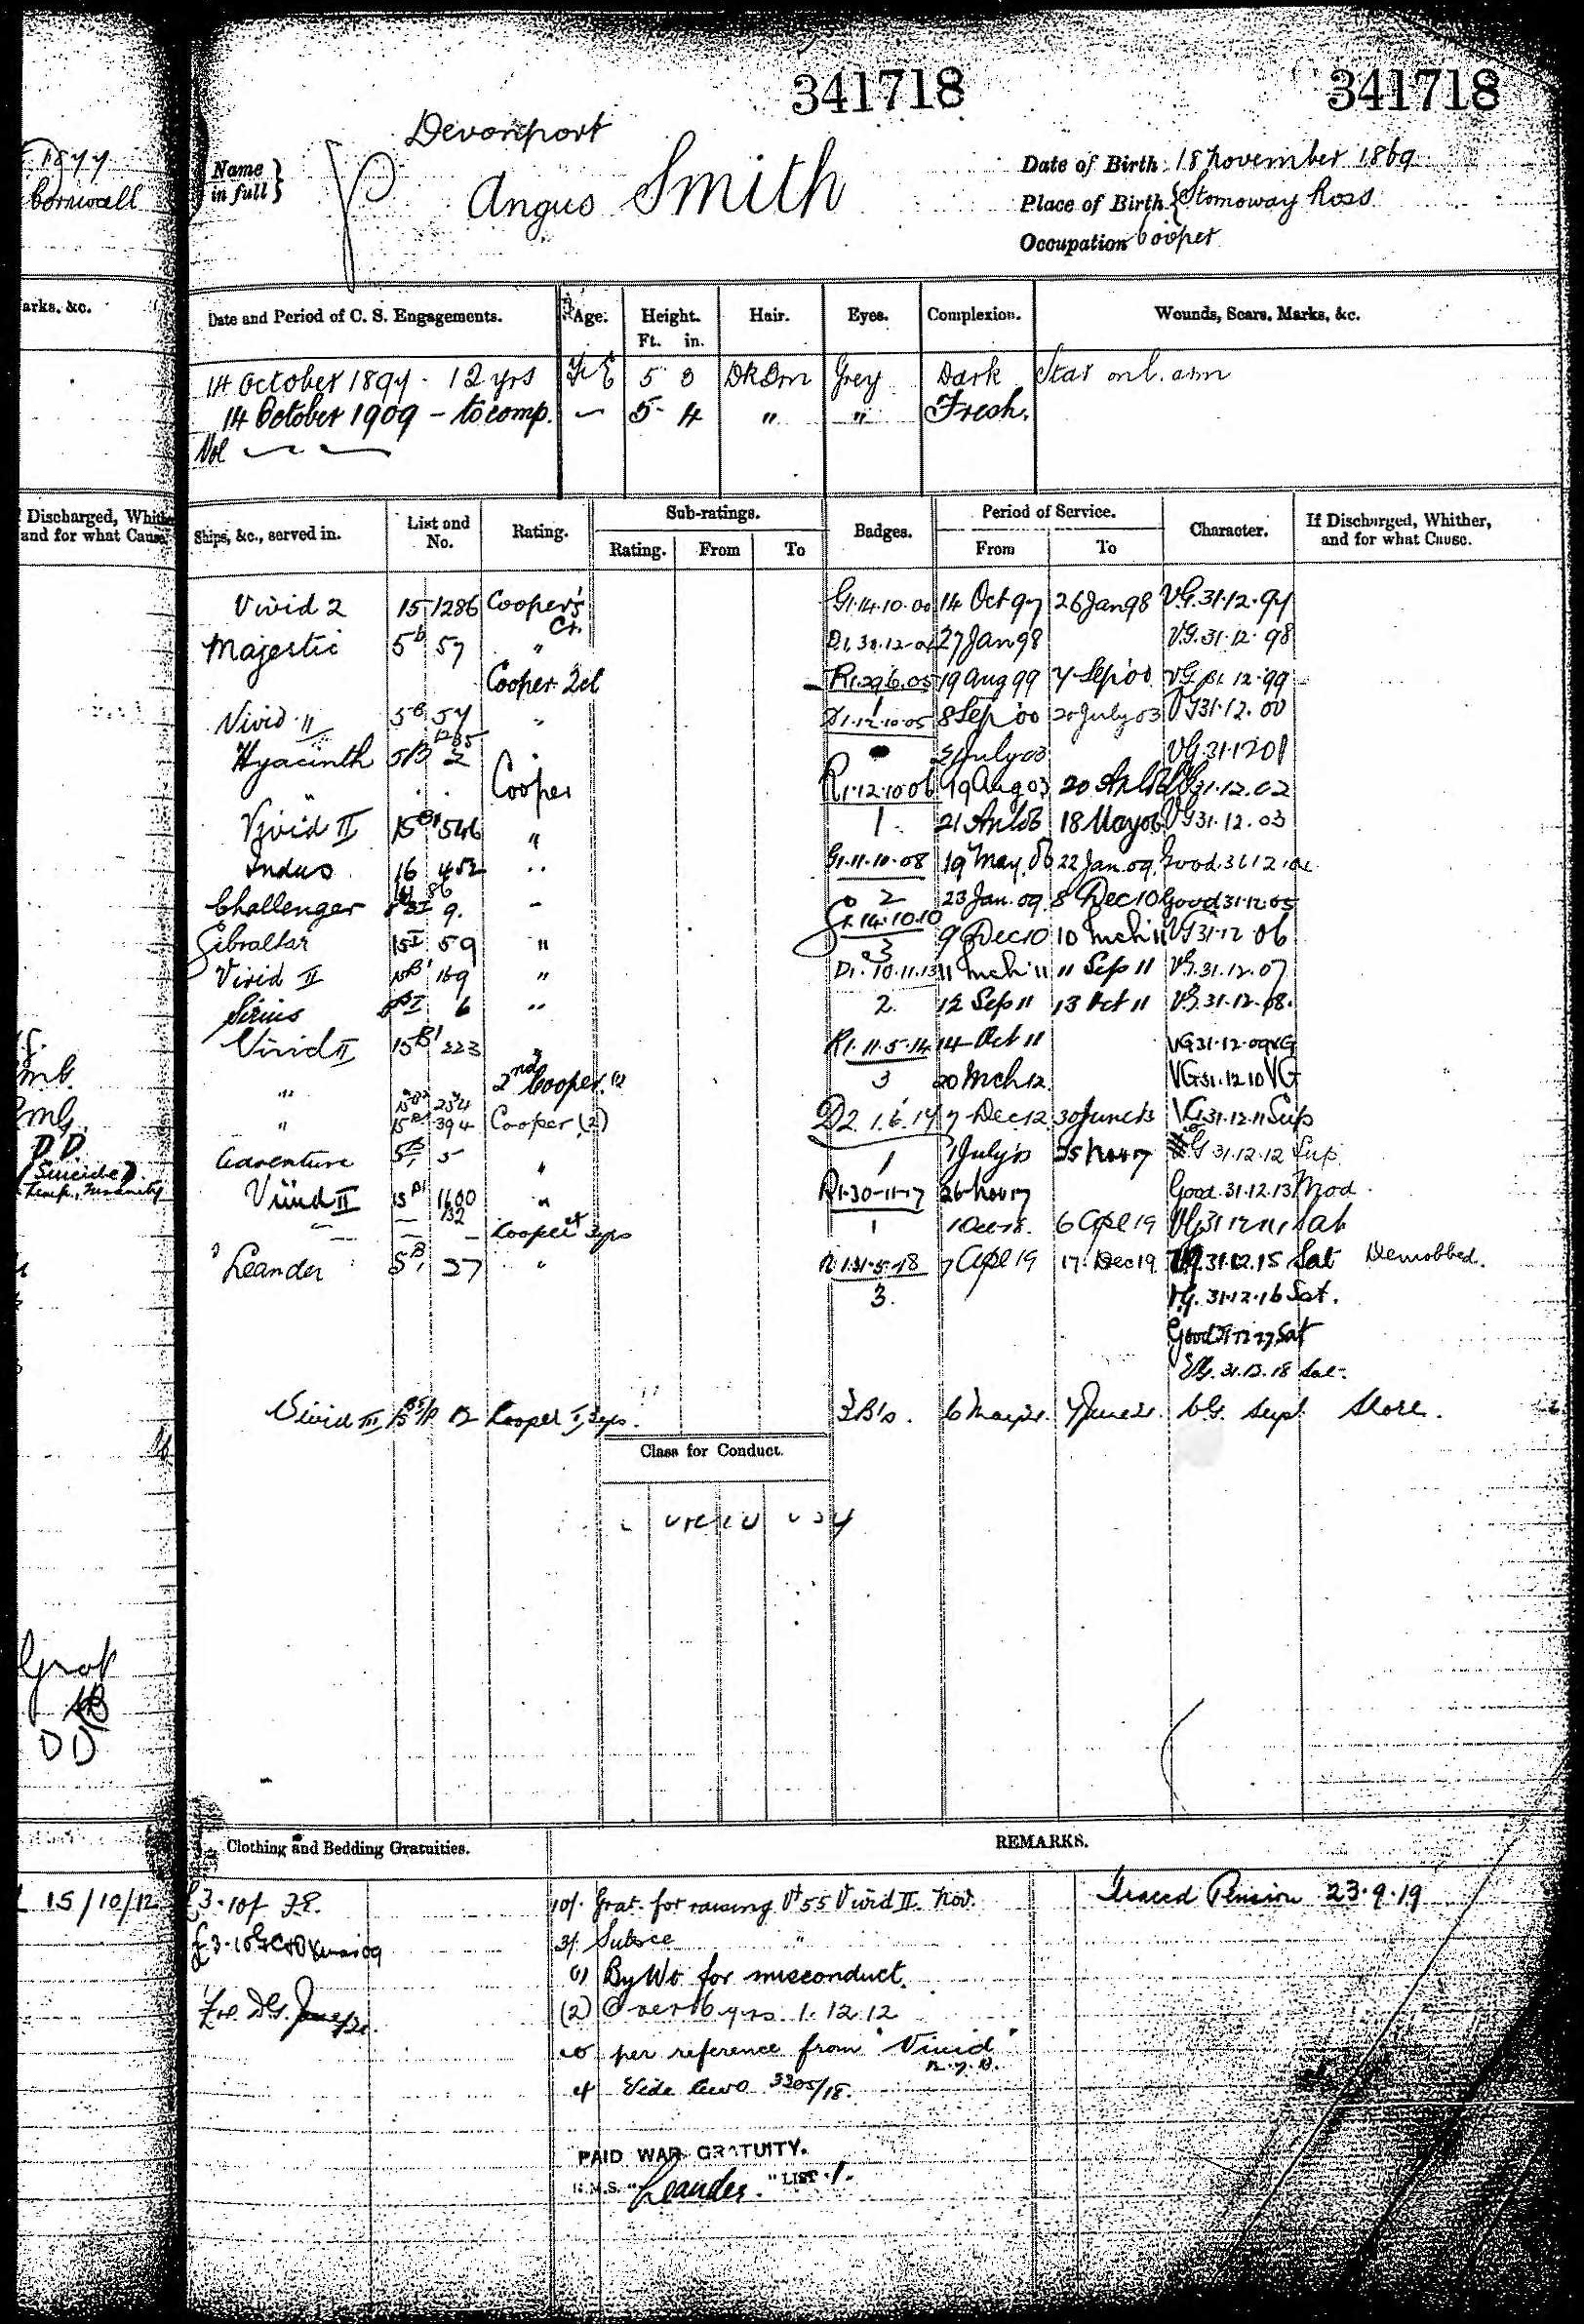 341718 341718
Devonport
1877
Cornwall
Name in full
Angus Smith
Date of Birth 18 November 1869
Place of Birth Stornoway Ross
Occupation Cooper
arks, &c.
Date and Period of C. S. Engagements. Age. Height. Ft. in. Hair. Eyes. Complexion. Wounds, Scars, Marks, &c.
14 October 1897 - 12 yrs 5 3 Dk Brn Grey Dark Scar on l. arm
14 October 1909 - to comp. — 5 4 " " Fresh.
Vol
Discharged, Whither and for what Cause.
Ships, &c., served in. List and No. Rating. Sub-ratings. Rating. From To Badges. Period of Service. From To Character. If Discharged, Whither, and for what Cause.
Vivid 2 15 1286 Cooper's Cr. G1.14.10.00 14 Oct 97 26 Jan 98 V.G. 31.12.97
Majestic 5b 57 " 27 Jan 98 V.G. 31.12.98
Cooper 2cl R1.29.6.05 19 Aug 99 7 Sep 00 VG 31.12.99
Vivid II 5B 57 " D1.12.10.05 8 Sep 00 20 July 03 VG 31.12.00
Hyacinth 5B 2 " 21 July 03 VG 31.12.01
" Cooper R1.12.10.06 19 Aug 03 20 Ap 06 VG 31.12.02
Vivid II 15B1 546 " 1 21 Ap 06 18 May 06 VG 31.12.03
Indus 16 452 " G1.11.10.08 19 May 06 22 Jan. 09 Good 31.12.04
Challenger 9. " 2 23 Jan. 09 8 Dec 10 Good 31.12.05
Gibraltar 15I 59 " G1.14.10.10 3 9 Dec 10 10 Mch 11 VG 31.12.06
Vivid II 15B1 169 " D1.10.11.13 11 Mch 11 11 Sep 11 VG. 31.12.07
Sirius 6 " 2 12 Sep 11 13 Oct 11 VG. 31.12.08.
Vivid II 15B1 223 " R1.11.5.14 14 Oct 11 VG 31.12.09 VG
" 2nd Cooper (1) 3 20 Mch 12 VG 31.12.10 VG
" 394 Cooper (2) D2 1.6.17 7 Dec 12 30 June 13 VG 31.12.11 Sup
Adventure 5B1 5 " 1 1 July 13 25 Nov 17 VG 31.12.12 Sup
Vivid II 15B1 1600 " R1.30.11.17 26 Nov 17 Good. 31.12.13 Mod.
132 Cooper 1 1 Dec 18. 6 Apl 19 Sat
Leander 5B1 27 " R1.31.5.18 3. 7 Apl 19 17 Dec 19 VG 31.12.15 Sat Demobbed.
V.G. 31.12.16 Sat.
Good 31.12.17 Sat
VG. 31.12.18 Sat.
Vivid III 12 Cooper 3 B's. 6 May 21. 7 June 21. V.G. Supl Store.
D.D.
(Suicide)
Temp. Insanity
Class for Conduct.
DD
Clothing and Bedding Gratuities. REMARKS.
15/10/12
£3.10/ 10/. Grat. for raising Vivid II. Nov. Traced Pension 23.9.19
3/. Subsce "
(1) By Wt for misconduct.
(2) Over 16 yrs. 1.12.12
per reference from "Vivid"
PAID WAR GRATUITY.
H.M.S. "Leander." LIST 1.